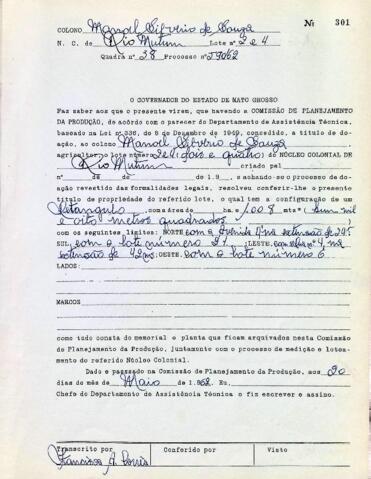 Nº 301
COLONO Manoel Silverio de Souza
N. C. de Rio Mutum Lote nº 2 e 4
Quadra nº 38 Processo nº
O GOVERNADOR DO ESTADO DE MATO GROSSO
Faz saber aos que o presente virem, que havendo a COMISSÃO DE PLANEJAMENTO
DA PRODUÇÃO, de acôrdo com o parecer do Departamento de Assistência Técnica,
baseado na Lei nº 336, de 6 de Dezembro de 1949, concedido, a titulo de do-
ação, ao colono Manoel Silverio de Souza
agricultor o lote número 2 e 4 (dois e quatro) do NÚCLEO COLONIAL DE
Rio Mutum criado pel
nº de de de 19 , achando-se o processo de do-
ação revestido das formalidades legais, resolveu conferir-lhe o presente
titulo de propriedade do referido lote, o qual tem a configuração de um
Retangulo com a área de ha. e 1.008 mts² (hum mil
e oito metros quadrados)
com os seguintes limites: NORTE com a Avenida na extensão de
SUL com o lote número LESTE nº 4 na
extensão de 42 ms; OESTE com o lote número 6
LADOS:
MARCOS
como tudo consta do memorial e planta que ficam arquivados nesta Comissão
de Planejamento da Produção, juntamente com o processo de medição e lotea-
mento do referido Núcleo Colonial.
Dado e passado na Comissão de Planejamento da Produção, aos 20
dias do mês de Maio de 1.958. Eu,
Chefe do Departamento de Assistência Técnica o fiz escrever e assino.
Transcrito por Conferido por Visto
Francisco